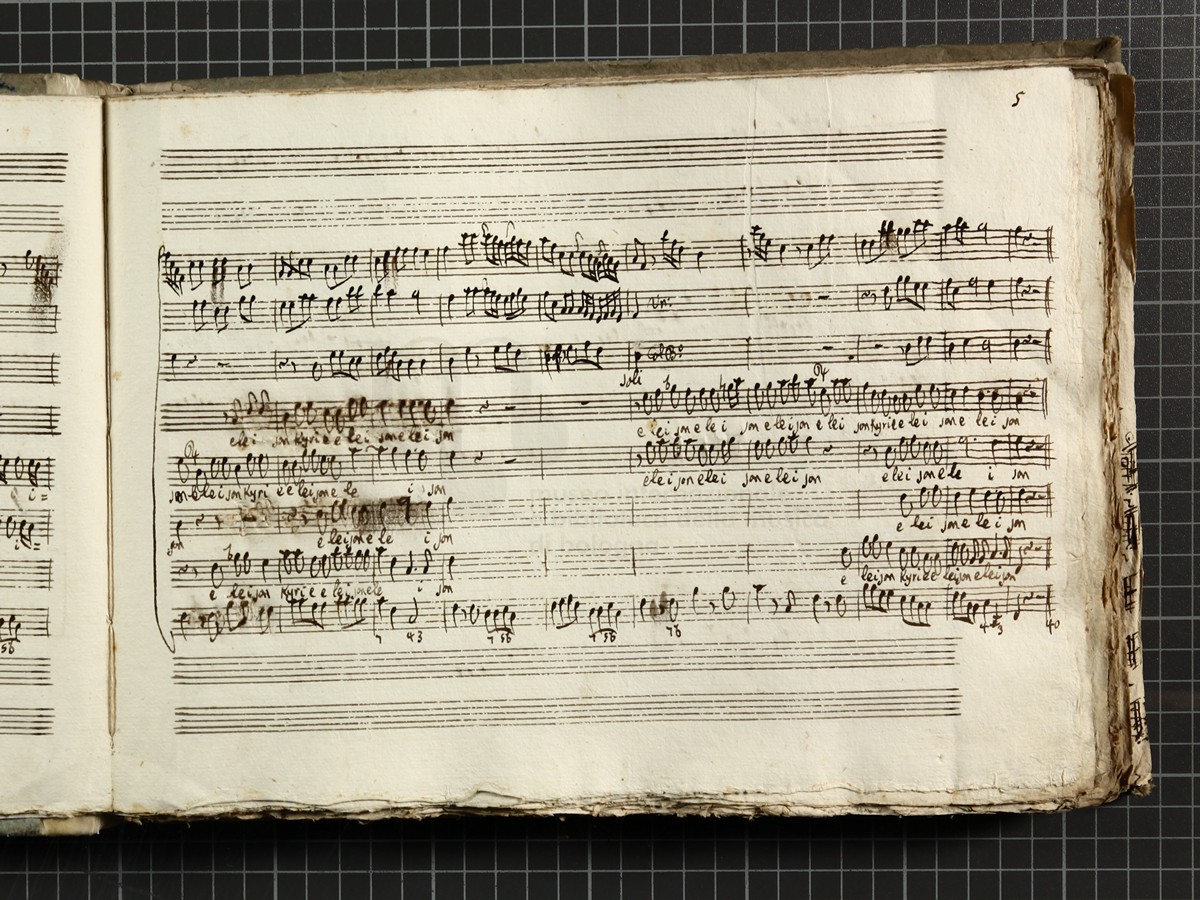 5
Un:
soli
elei son kyrie e lei son e lei son
e lei son e lei son e lei son e lei son kyrie e lei son e lei son
son e lei son kyri e e lei son e le i son
e lei son e lei son e lei son e lei son e le i son
i=
son e lei son e le i son
e lei son e lei son
e lei son kyrie e lei son e le i son
e lei son kyrie e lei son e lei son
7 4 3 7 56 7 56 76 4 3
56